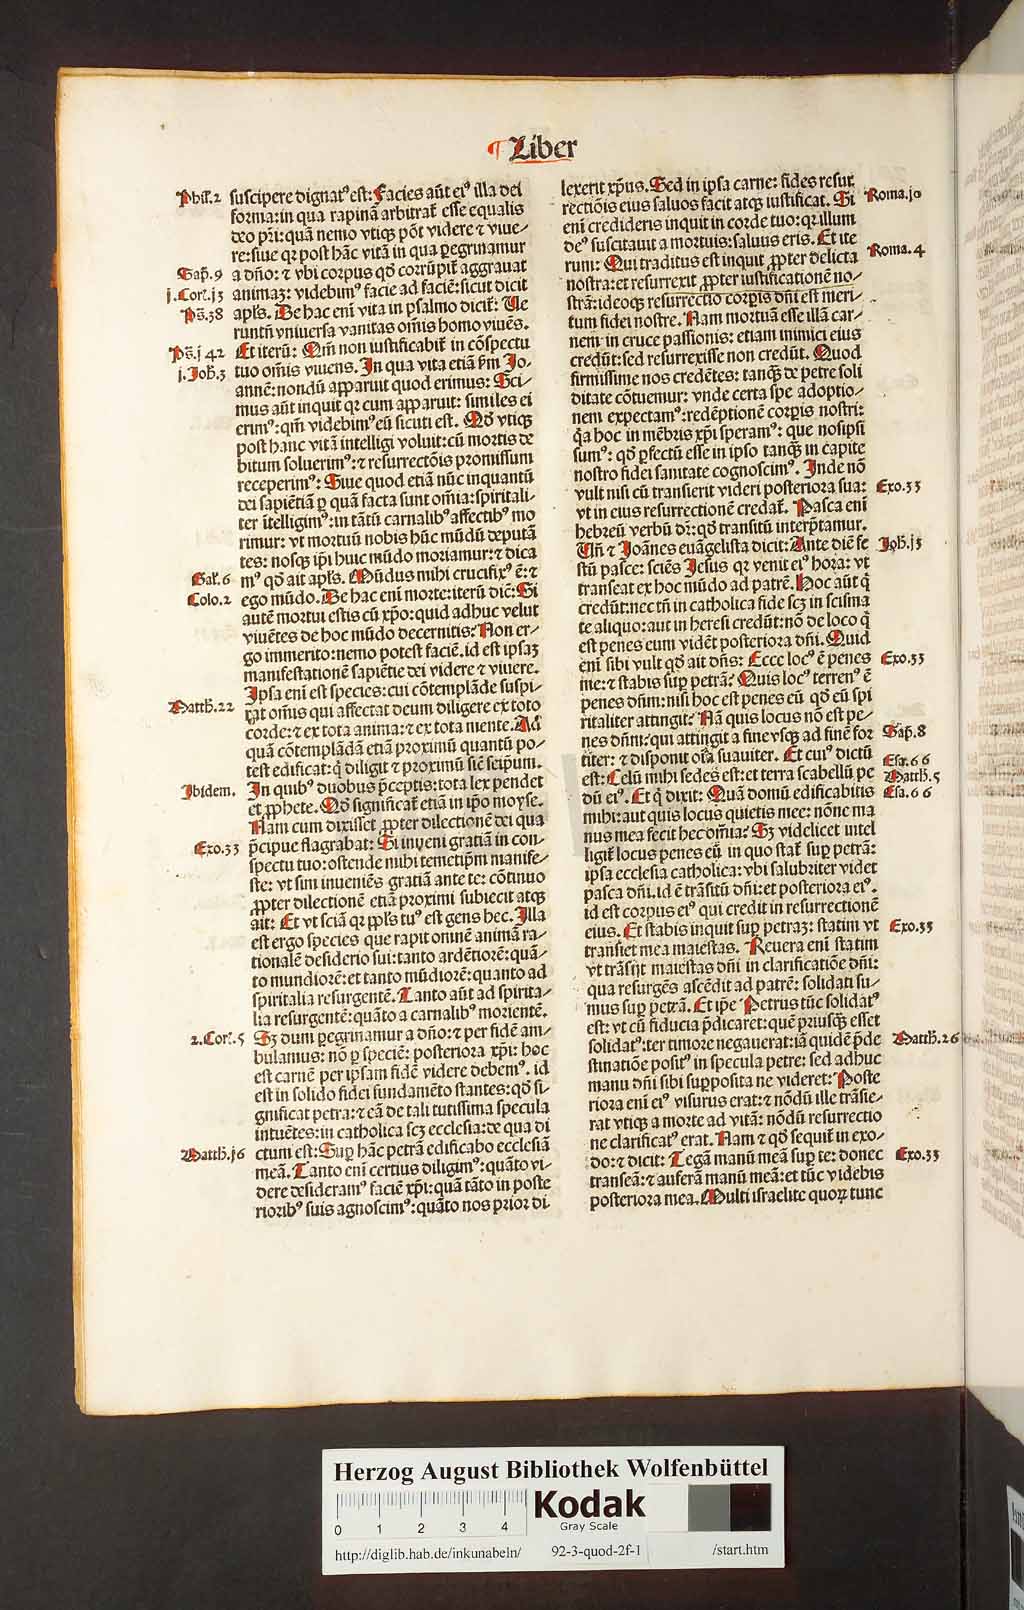 ¶ Liber
Phil'. 2
suscipere dignat⁹ est: Facies aūt ei⁹ illa dei
forma: in qua rapinā arbitrat̄ esse equalis
deo pr̄i: quā nemo vtiqꝫ pōt videre ⁊ viue-
re: siue qꝛ post hāc vitā in qua ꝑegrinamur
Sap̄. 9
a dn̄o: ⁊ vbi corpus qd̄ corrūpit̄ aggrauat
j. Cor̄. j3
animaꝫ: videbim⁹ facie ad faciē: sicut dicit
Ps̄. 38
apl̄s. De hac eni vita in psalmo dicit̄: Ue
runtn̄ vniuersa vanitas om̄is homo viuēs.
Ps̄. j 42
Et iterū: Qm̄ non iustificabit̄ in cōspectu
j. Joh̄. 3
tuo om̄is viuens. In qua vita etiā ꝑm Jo-
annē: nondū apparuit quod erimus: Sci-
mus aūt inquit qꝛ cum apparuit: similes ei
erim⁹: qm̄ videbim⁹ eū sicuti est. Qd̄ vtiqꝫ
post hanc vitā intelligi voluit: cū mortis de
bitum soluerim⁹: ⁊ resurrectōis promissum
receperim⁹: Siue quod etiā nūc inquantū
dei sapiētiā ꝑ quā facta sunt om̄ia: spiritali-
ter ītelligim⁹: in tātū carnalib⁹ affectib⁹ mo
rimur: vt mortuū nobis hūc mūdū deputā
tes: nosqꝫ ip̄i huic mūdo moriamur: ⁊ dica
Gal'. 6
m⁹ qd̄ ait apl̄s. Mūdus mihi crucifix⁹ ē: ⁊
Colo. 2
ego mūdo. De hac eni morte: iterū dic̄: Si
autē mortui estis cū xp̄o: quid adhuc velut
viuētes de hoc mūdo decernitis? Non er-
go immerito: nemo potest faciē. id est ipsaꝫ
manifestationē sapiētie dei videre ⁊ viuere.
Ipsa eni est species: cui cōtemplāde suspi-
Matth̄. 22
rat om̄is qui affectat deum diligere ex toto
corde: ⁊ ex tota anima: ⁊ ex tota mente. Ad
quā cōtemplādā etiā proximū quantū po-
test edificat: q̄ diligit ⁊ proximū sic̄ seip̄um.
Ibidem.
In quib⁹ duobus p̄ceptis: tota lex pendet
et ꝓphete. Qd̄ significat̄ etiā in ip̄o moyse.
Nam cum dixisset ꝓpter dilectionē dei qua
Exo. 33
p̄cipue flagrabat: Si inueni gratiā in con-
spectu tuo: ostende mihi temetip̄m manife-
ste: vt sim inueniēs gratiā ante te: cōtinuo
ꝓpter dilectionē etiā proximi subiecit atqꝫ
ait: Et vt sciā qꝛ ppl̄s tu⁹ est gens hec. Illa
est ergo species que rapit omnē animā ra-
tionalē desiderio sui: tanto ardētiorē: quā-
to mundiorē: et tanto mūdiorē: quanto ad
spiritalia resurgentē. Tanto aūt ad spirita-
lia resurgentē: quāto a carnalib⁹ morientē.
2. Cor̄. 5
Sꝫ dum ꝑegrinamur a dn̄o: ⁊ per fidē am-
bulamus: nō ꝑ speciē: posteriora xp̄i: hoc
est carnē per ipsam fidē videre debem⁹. id
est in solido fidei fundamēto stantes: qd̄ si-
gnificat petra: ⁊ eā de tali tutissima specula
intuētes: in catholica scꝫ ecclesia: de qua di
Matth̄. j6
ctum est: Suꝑ hāc petrā edificabo ecclesiā
meā. Tanto eni certius diligim⁹: quāto vi-
dere desideram⁹ faciē xp̄i: quā tāto in poste
riorib⁹ suis agnoscim⁹: quāto nos prior di
lexerit xp̄us. Sed in ipsa carne: fides resur
rectiōis eius saluos facit atqꝫ iustificat. Si
Roma. jo
eni credideris inquit in corde tuo: qꝛ illum
de⁹ suscitauit a mortuis: saluus eris. Et ite
rum: Qui traditus est inquit ꝓpter delicta
Roma. 4
nostra: et resurrexit ꝓpter iustificationē no-
strā: ideoqꝫ resurrectio corꝑis dn̄i est meri-
tum fidei nostre. Nam mortuā esse illā car-
nem in cruce passionis: etiam inimici eius
credūt: sed resurrexisse non credūt. Quod
firmissime nos credētes: tanqꝫ de petre soli
ditate cōtuemur: vnde certa spe adoptio-
nem expectam⁹: redēptionē corꝑis nostri:
q̄a hoc in mēbris xp̄i speram⁹: que nosipsi
sum⁹: qd̄ ꝑfectū esse in ipso tanqꝫ in capite
nostro fidei sanitate cognoscim⁹. Inde nō
vult nisi cū transierit videri posteriora sua:
Exo. 33
vt in eius resurrectionē credat̄. Pasca eni
hebreū verbū dr̄: qd̄ transitū interp̄tamur.
Un̄ ⁊ Joānes euāgelista dicit: Ante diē fe
Joh̄. j3
stū pasce: sciēs Jesus qꝛ venit ei⁹ hora: vt
transeat ex hoc mūdo ad patrē. Hoc aūt q̄
credūt: nec tn̄ in catholica fide scꝫ in scisma
te aliquo: aut in heresi credūt: nō de loco q̄
est penes eum vidēt posteriora dn̄i. Quid
eni sibi vult qd̄ ait dn̄s: Ecce loc⁹ ē penes
Exo. 33
me: ⁊ stabis suꝑ petrā? Quis loc⁹ terren⁹ ē
penes dn̄m: nisi hoc est penes eū qd̄ eū spi
ritaliter attingit? Nā quis locus nō est pe-
nes dn̄m: qui attingit a fine vsqꝫ ad finē for
Sap̄. 8
titer: ⁊ disponit oīa suauiter. Et cui⁹ dictū
Esa. 66
est: Celū mihi sedes est: et terra scabellū pe
Matth̄. 5
dū ei⁹. Et q̄ dixit: Quā domū edificabitis
Esa. 66
mihi: aut quis locus quietis mee: nōne ma
nus mea fecit hec om̄ia? Sꝫ videlicet intel
ligit̄ locus penes eū in quo stat̄ suꝑ petrā:
ipsa ecclesia catholica: vbi salubriter videt
pasca dn̄i. id ē trāsitū dn̄i: et posteriora ei⁹.
id est corpus ei⁹ qui credit in resurrectionē
eius. Et stabis inquit suꝑ petraꝫ: statim vt
Exo. 33
transiet mea maiestas. Reuera eni statim
vt trāsijt maiestas dn̄i in clarificatiōe dn̄i:
qua resurgēs ascēdit ad patrē: solidati su-
mus suꝑ petrā. Et ip̄e Petrus tūc solidat⁹
est: vt cū fiducia p̄dicaret: quē priusqꝫ esset
solidat⁹: ter timore negauerat: iā quidē p̄de
Matth̄. 26
stinatiōe posit⁹ in specula petre: sed adhuc
manu dn̄i sibi suꝑposita ne videret: Poste
riora eni ei⁹ visurus erat: ⁊ nōdū ille trāsie-
rat vtiqꝫ a morte ad vitā: nōdū resurrectio
ne clarificat⁹ erat. Nam ⁊ qd̄ sequit̄ in exo-
do: ⁊ dicit: Tegā manū meā suꝑ te: donec
Exo. 33
transeā: ⁊ auferā manū meā: et tūc videbis
posteriora mea. Multi israelite quoꝝ tunc
Herzog August Bibliothek Wolfenbüttel
0 1 2 3 4
Kodak
Gray Scale
http://diglib.hab.de/inkunabeln/ 92-3-quod-2f-1 /start.htm